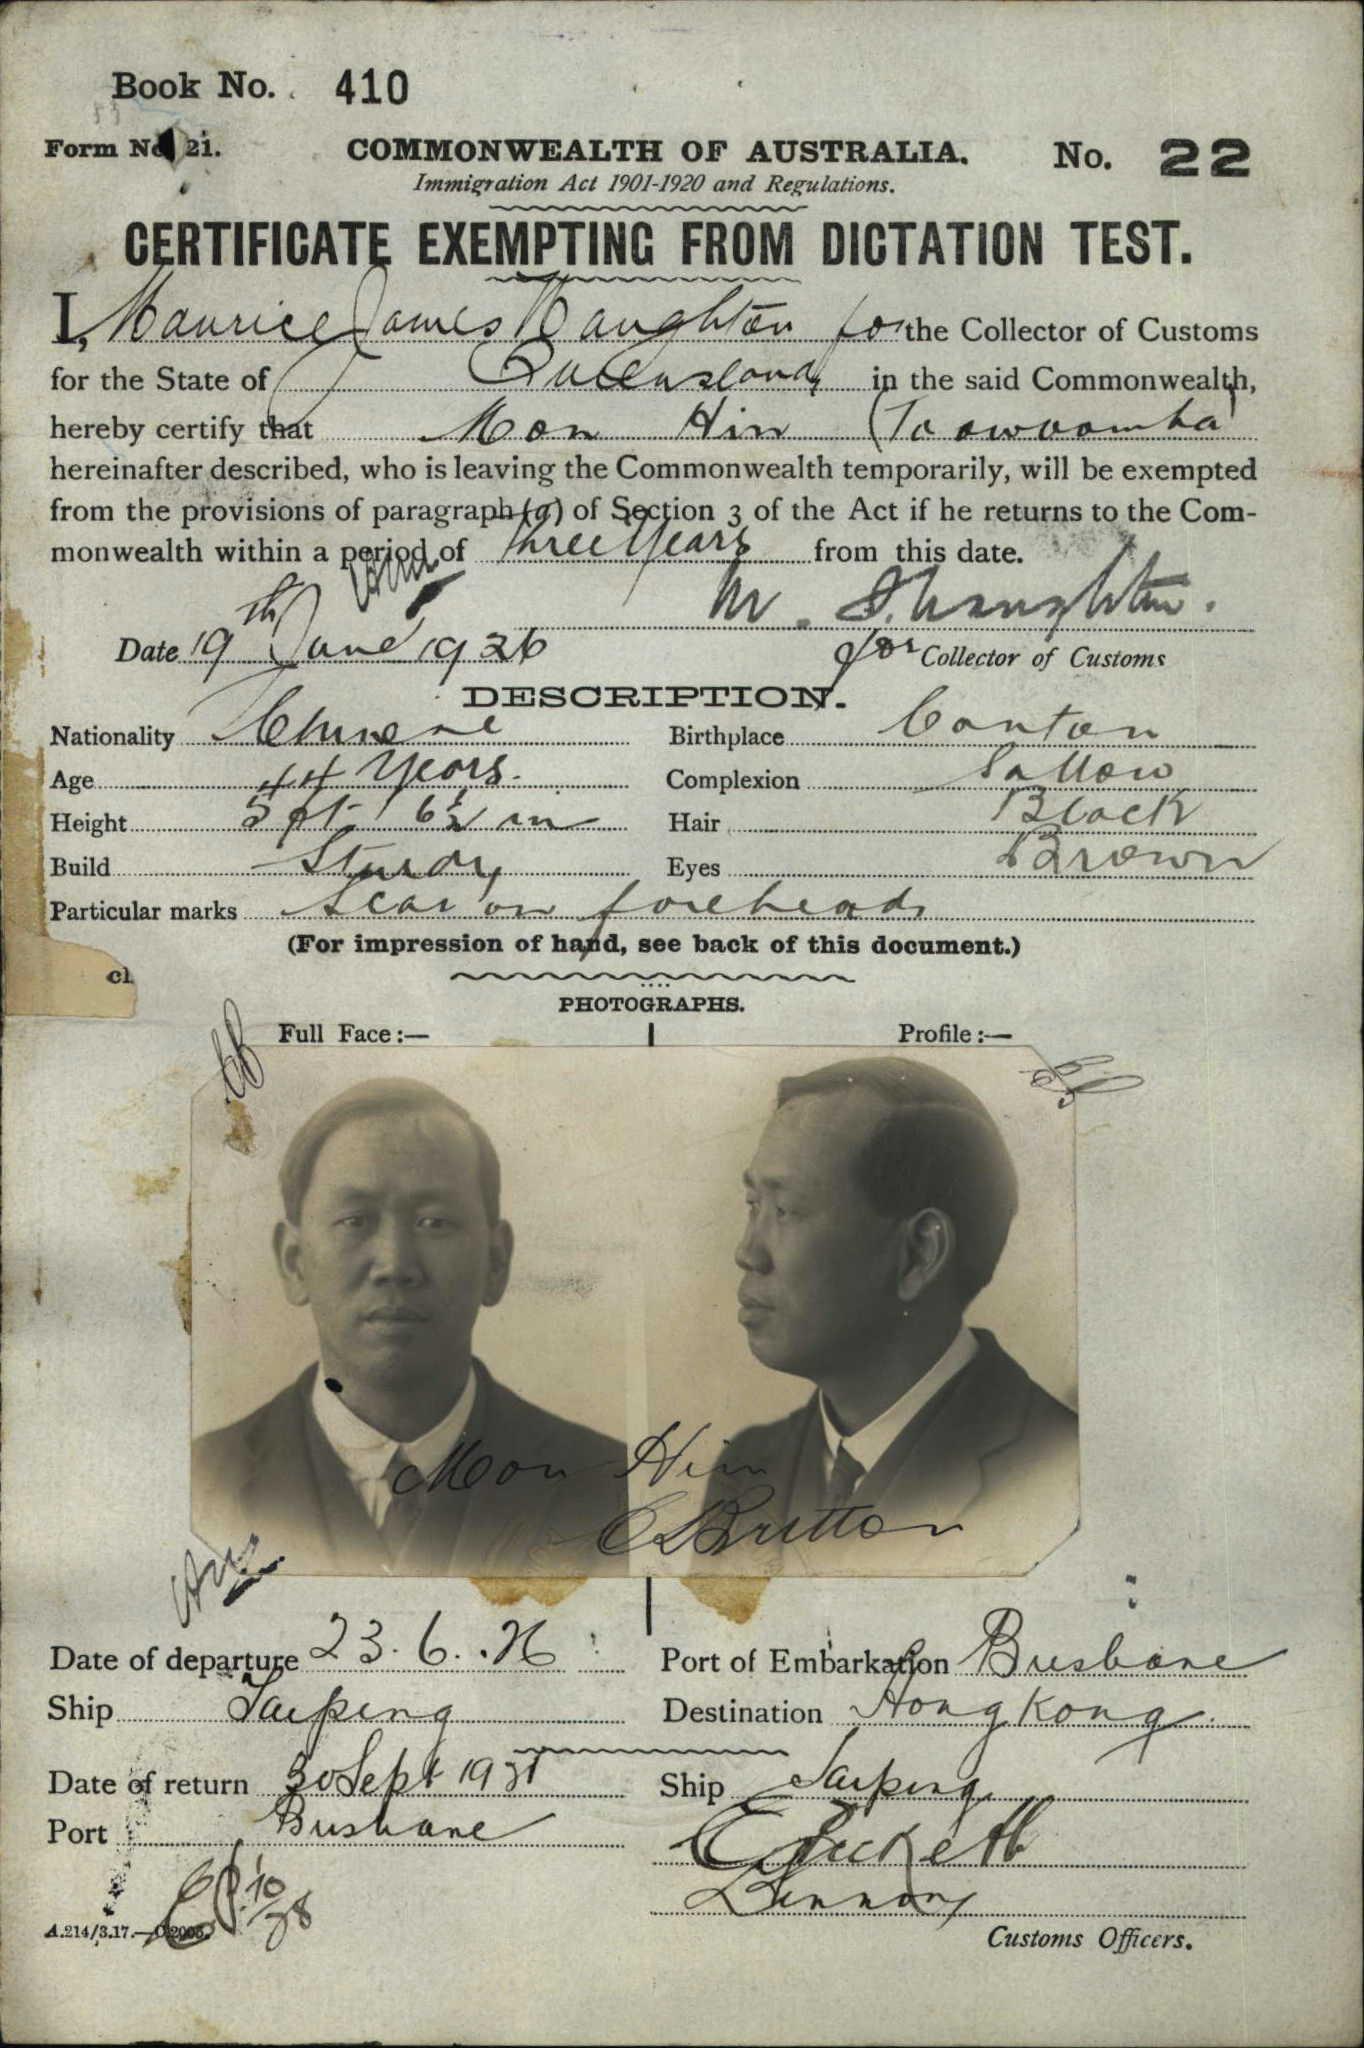 Book No. 410
Form No. 21.
COMMONWEALTH OF AUSTRALIA.
No. 22
Immigration Act 1901-1920 and Regulations.
CERTIFICATE EXEMPTING FROM DICTATION TEST.
I, Maurice James Naughton for the Collector of Customs
for the State of Queensland in the said Commonwealth,
hereby certify that Mon Hin (Toowoomba)
hereinafter described, who is leaving the Commonwealth temporarily, will be exempted
from the provisions of paragraph (a) of Section 3 of the Act if he returns to the Com-
monwealth within a period of three Years from this date.
M. J. Naughton.
Date 19th June 1926
for Collector of Customs
DESCRIPTION.
Nationality Chinese Birthplace Canton
Age 44 Years. Complexion Sallow
Height 5 ft 6½ in Hair Black
Build Sturdy Eyes Brown
Particular marks Scar on forehead
(For impression of hand, see back of this document.)
cl
PHOTOGRAPHS.
Full Face:— Profile:—
Mon Hin
Britton
Date of departure 23.6.26 Port of Embarkation Brisbane
Ship Taiping Destination Hong Kong
Date of return 30 Sept 1928 Ship Taiping
Port Brisbane
10/28
A.214/3.17.—
Customs Officers.